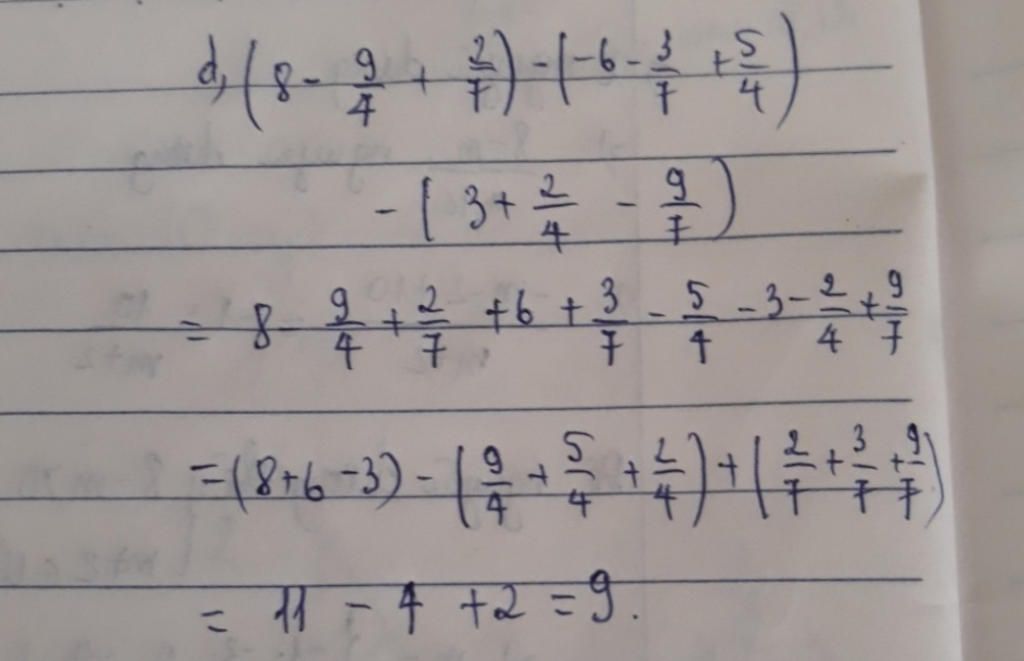 d, (8 - 9/4 + 2/7) - (-6 - 3/7 + 5/4)
- (3 + 2/4 - 9/7)
= 8 - 9/4 + 2/7 + 6 + 3/7 - 5/4 - 3 - 2/4 + 9/7
= (8 + 6 - 3) - (9/4 + 5/4 + 2/4) + (2/7 + 3/7 + 9/7)
= 11 - 4 + 2 = 9.